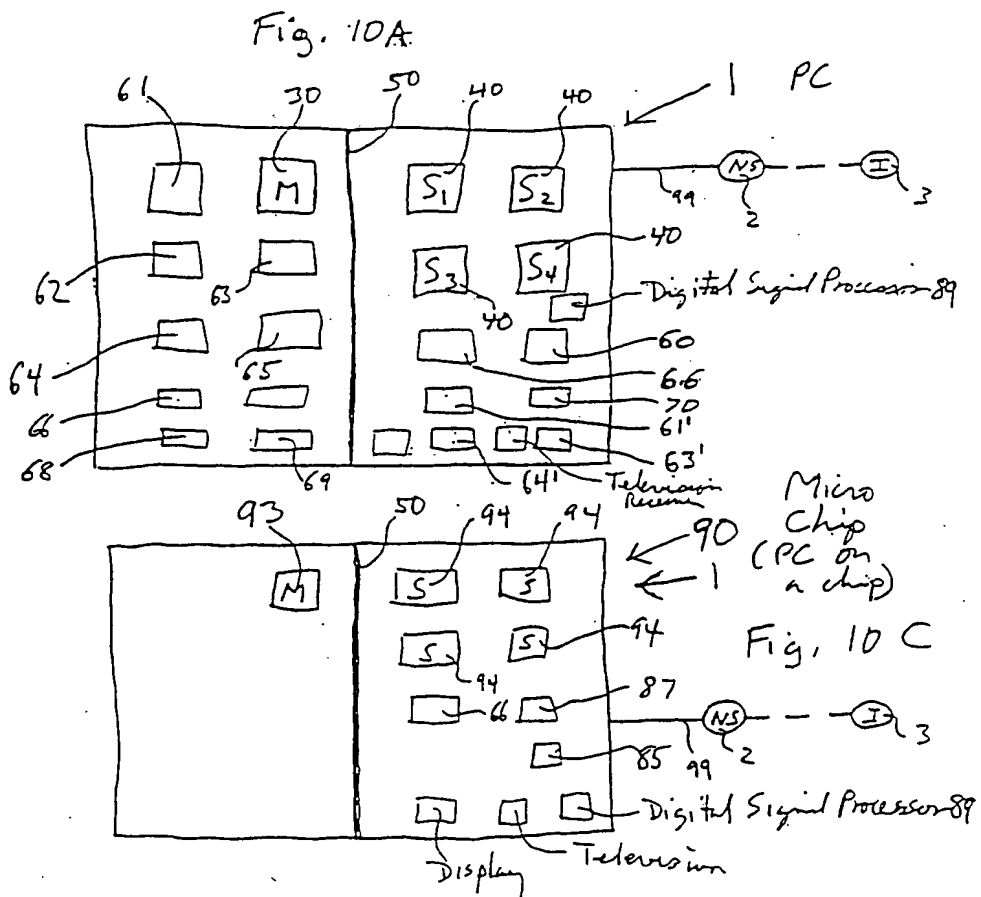 Fig. 10A
61 30 50 40 40 1 PC
M S1 S2 99 NS 2 I 3
62 63 S3 40 S4 40
Digital Signal Processor 89
64 65 60
66
66 70
61'
68 69 64' 63'
Television
Receiver
93 50 94 94 90 Micro
Chip
(PC on
a chip)
1
M S S
S 94 S 94 Fig. 10 C
66 87 99 NS 2 I 3
85
Digital Signal Processor 89
Display Television